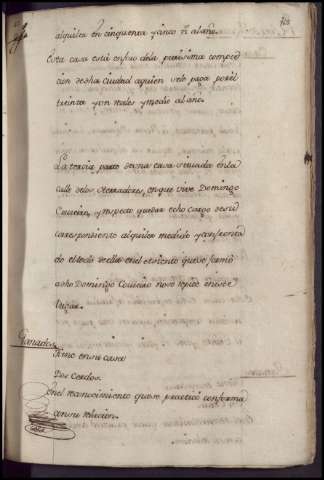 alquiler en cinquenta y cinco rr.s al año.
Esta casa está enfeudo de la purisima comcep
cion de dha ciudad a quien se le paga por el
treinta y un reales y medio al año.
La tercia parte de una casa situada en la
calle de los Herradores, en que vive Domingo
Couceiro, y respecto quedar echo cargo de su
correspondiente alquiler medida y confrontaz.
de el todo de ella en el asiento que se formó
a dho Domingo Couceiro no se repite en este
lugar.
Ganados
tiene en su casa
Dos Cerdos.
en el reconocimiento que se practicó conforma
con su relacion.